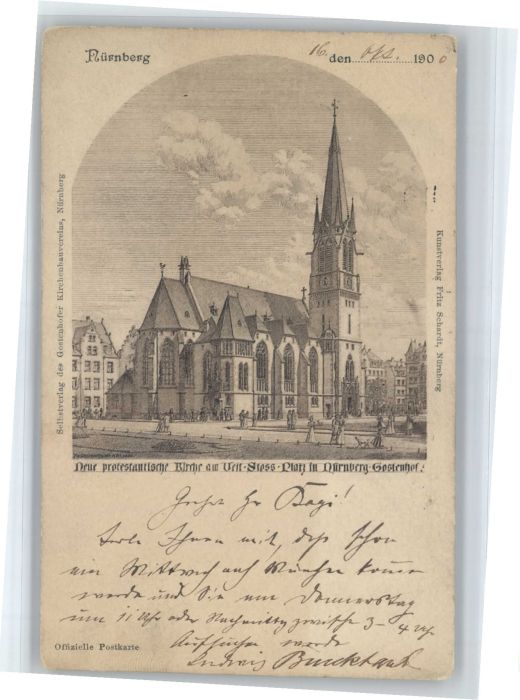 Nürnberg
16. den Okt. 1900
Selbstverlag des Gostenhofer Kirchenbauvereins, Nürnberg
Kunstverlag Fritz Schardt, Nürnberg
Neue protestantische Kirche am Veit-Stoss-Platz in Nürnberg-Gostenhof.
Geehrt Hr
Teile Ihnen mit, daß schon
am Mittwoch auf München komme
werde und Sie am Donnerstag
um 11 Uhr oder Nachmittg zwischen 3-4 Uhr
Aufsuchen werde
Ludwig Burckhardt
Offizielle Postkarte